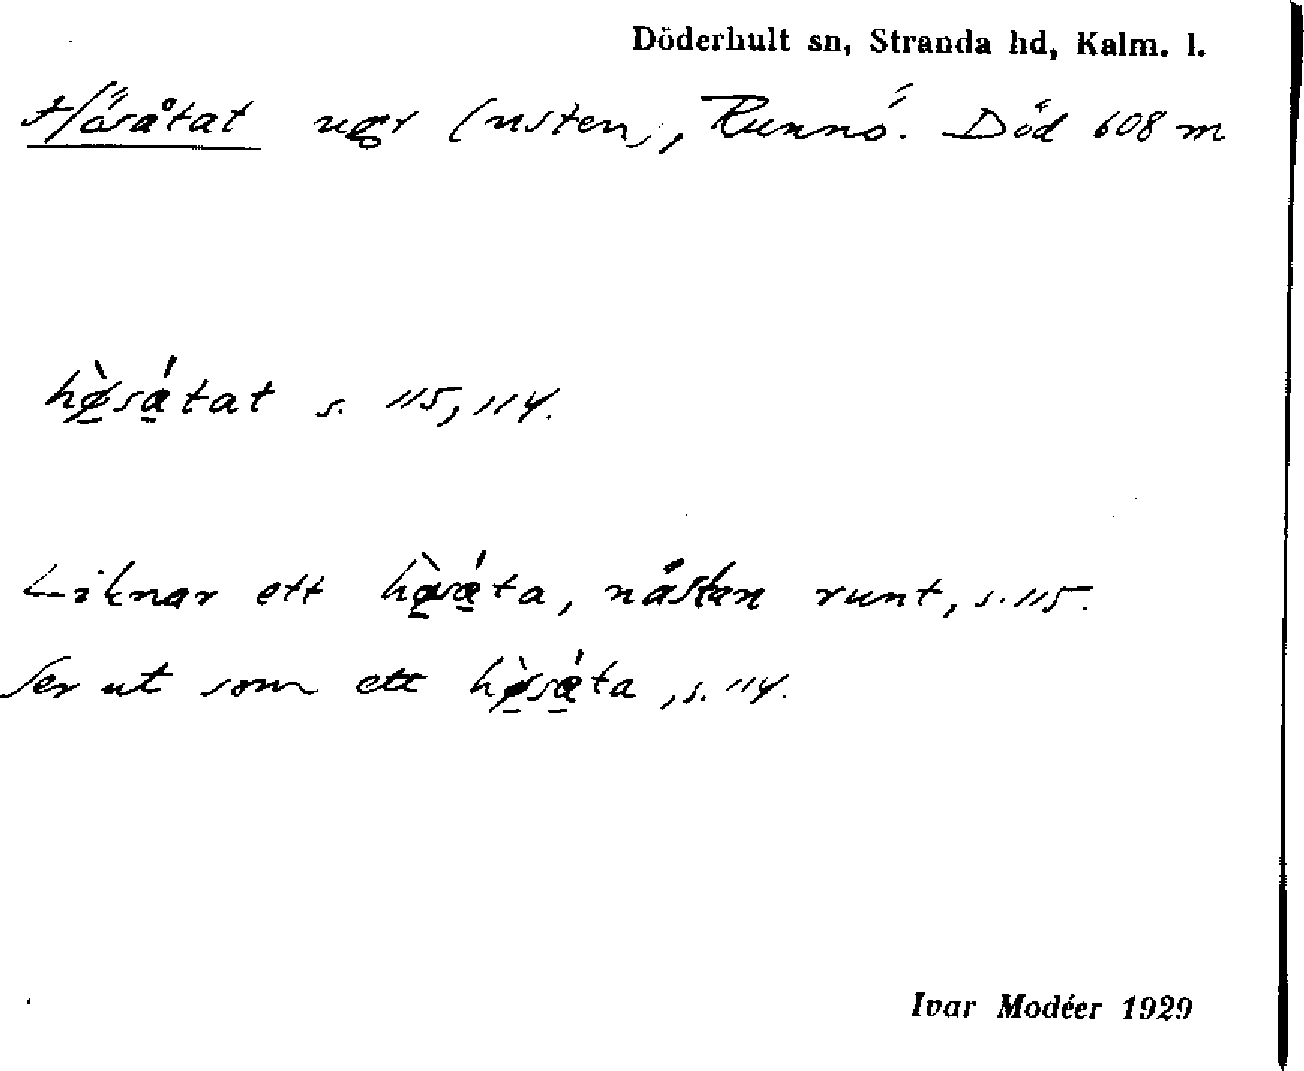 Döderhult sn, Stranda hd, Kalm. l.
Hösåtat ugr (nsten), Runnö. Död 608 m
hø̀sátat s. 115, 114.
Liknar ett hø̀sáta, nästan runt, s. 115.
Ser ut som ett hø̀sáta, s. 114.
Ivar Modéer 1929